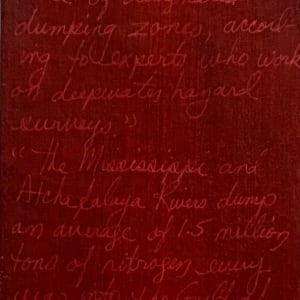 of designated
dumping zones, accord-
ing to experts who work
on deepwater hazard
surveys."
"The Mississippi and
Atchafalaya Rivers dump
an average of 1.5 million
tons of nitrogen every
year into the Gulf of